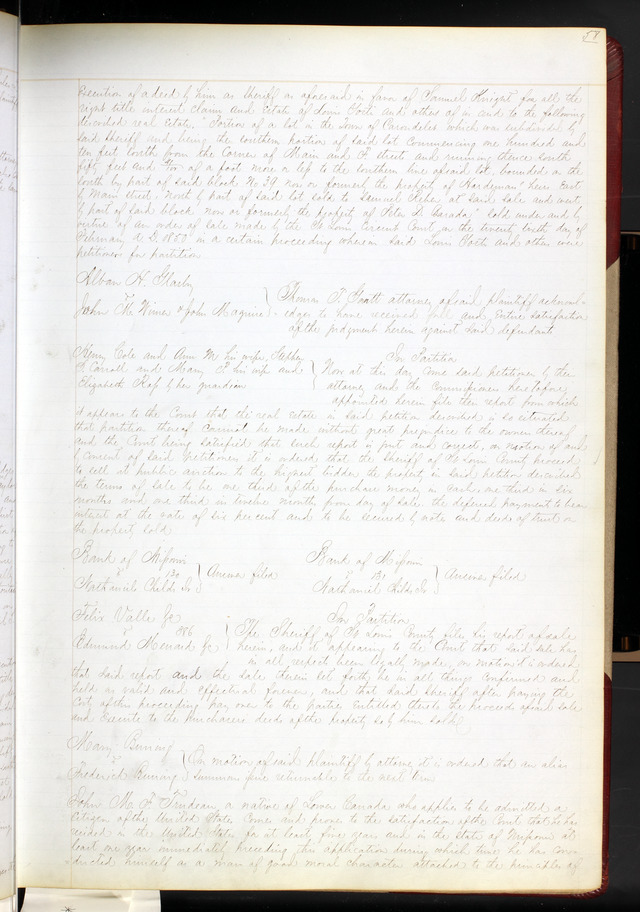 58
Execution of a deed by him as Sheriff as aforesaid in favor of Samuel Knight for all the
right title interest claim and estate of Louis and others of in and to the following
described real estate. Portion of a lot in the Town of Carondelet which was subdivided by
said Sheriff and being the southern portion of said lot commencing one hundred and
ten feet south from the corner of Main and street and running thence south
fifty feet and of a foot more or less to the southern line of said lot, bounded on the
south by part of said block No 39 now or formerly the property of Hardeman, here East
by Main street, North by part of said lot sold to Samuel at said sale and west
by part of said block now or formerly the property of Peter D. Barada, sold under and by
virtue of an order of sale made by the St Louis Circuit Court on the twenty sixth day of
February A D. in a certain proceeding wherein said Louis and others were
petitioners for partition
Alban H.
vs
John M. Wimer & John Maguire
Thomas T. Gantt attorney of said plaintiff acknowl-
edges to have received full and entire satisfaction
of the judgment herein against said defendant
Henry Cole and Ann M his wife, Stephen
Carroll and Mary F his wife and
Elizabeth by her guardian
In Partition
Now at this day come said petitioners by their
attorney and the commissioners heretofore
appointed herein file their report from which
it appears to the Court that the real estate in said petition described is so situated
that partition thereof cannot be made without great prejudice to the owners thereof
and the Court being satisfied that such report is just and correct, on motion of and
by consent of said Petitioners it is ordered that the Sheriff of St Louis County proceed
to sell at public auction to the highest bidder the property in said petition described
the terms of sale to be one third of the purchase money in Cash, one third in six
months and one third in twelve months from day of sale. the deferred payments to bear
interest at the rate of six per cent and to be secured by notes and deeds of trust on
the property sold
Bank of Missouri
vs
Nathaniel Childs Jr
Answer filed
Bank of Missouri
vs
Nathaniel Childs Jr
Answer filed
Felix Valle Jr
vs 886
Edmund Menard Jr
In Partition
The Sheriff of St Louis County files his report of sale
herein, and it appearing to the Court that said sale has
in all respects been legally made, on motion it is ordered
that said report and the sale therein set forth be in all things confirmed and
held as valid and effectual forever, and that said sheriff after paying the
Costs of this proceeding pay over to the parties entitled thereto the proceeds of said sale
and Execute to the purchasers deeds of the property so by him sold
Mary Buning
vs
Frederick Buning
On motion of said plaintiff by attorney it is ordered that an alias
summons issue returnable to the next term
John M. F. Trudeau, a native of Lower Canada who applies to be admitted a
citizen of the United States, Comes and proves to the satisfaction of the Court that he has
resided in the United States for at least five years and in the State of Missouri at
least one year immediately preceding this application during which time he has con-
ducted himself as a man of good moral character attached to the principles of